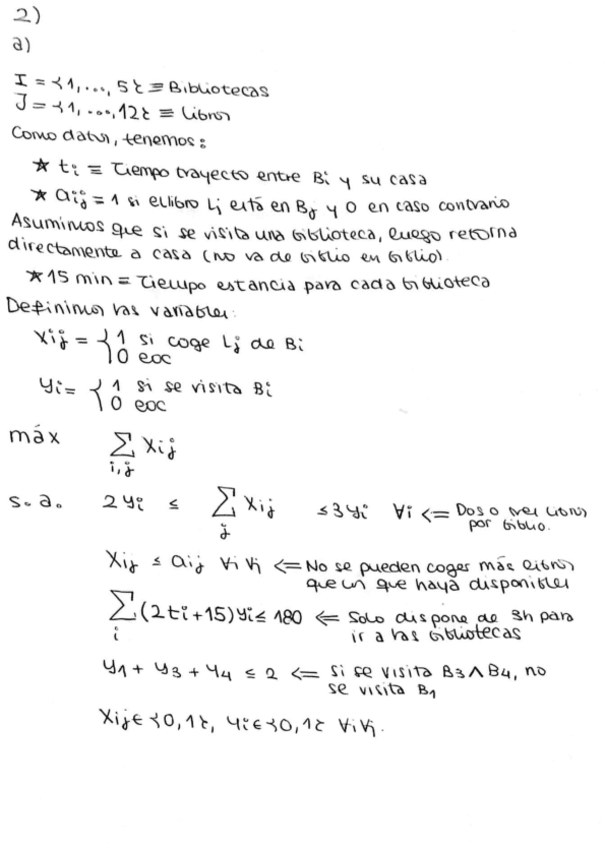 2)
a)
I = {1, ..., 5} ≡ Bibliotecas
J = {1, ..., 12} ≡ Libros
Como datos, tenemos:
* ti ≡ Tiempo trayecto entre Bi y su casa
* aij = 1 si el libro Li está en Bj y 0 en caso contrario
Asumimos que si se visita una biblioteca, luego retorna
directamente a casa (no va de biblio en biblio).
* 15 min = Tiempo estancia para cada biblioteca
Definimos las variables:
xij = { 1 si coge Lj de Bi
0 eoc
yi = { 1 si se visita Bi
0 eoc
máx ∑i,j xij
s. a. 2yi ≤ ∑j xij ≤ 3yi ∀i <= Dos o tres libros
por biblio.
xij ≤ aij ∀i ∀j <= No se pueden coger más libros
que un que haya disponibles
∑i (2ti+15)yi ≤ 180 <= Solo dispone de 3h para
ir a las bibliotecas
y1 + y3 + y4 ≤ 2 <= Si se visita B3 ∧ B4, no
se visita B1
xij ∈ {0,1}, yi ∈ {0,1} ∀i ∀j.